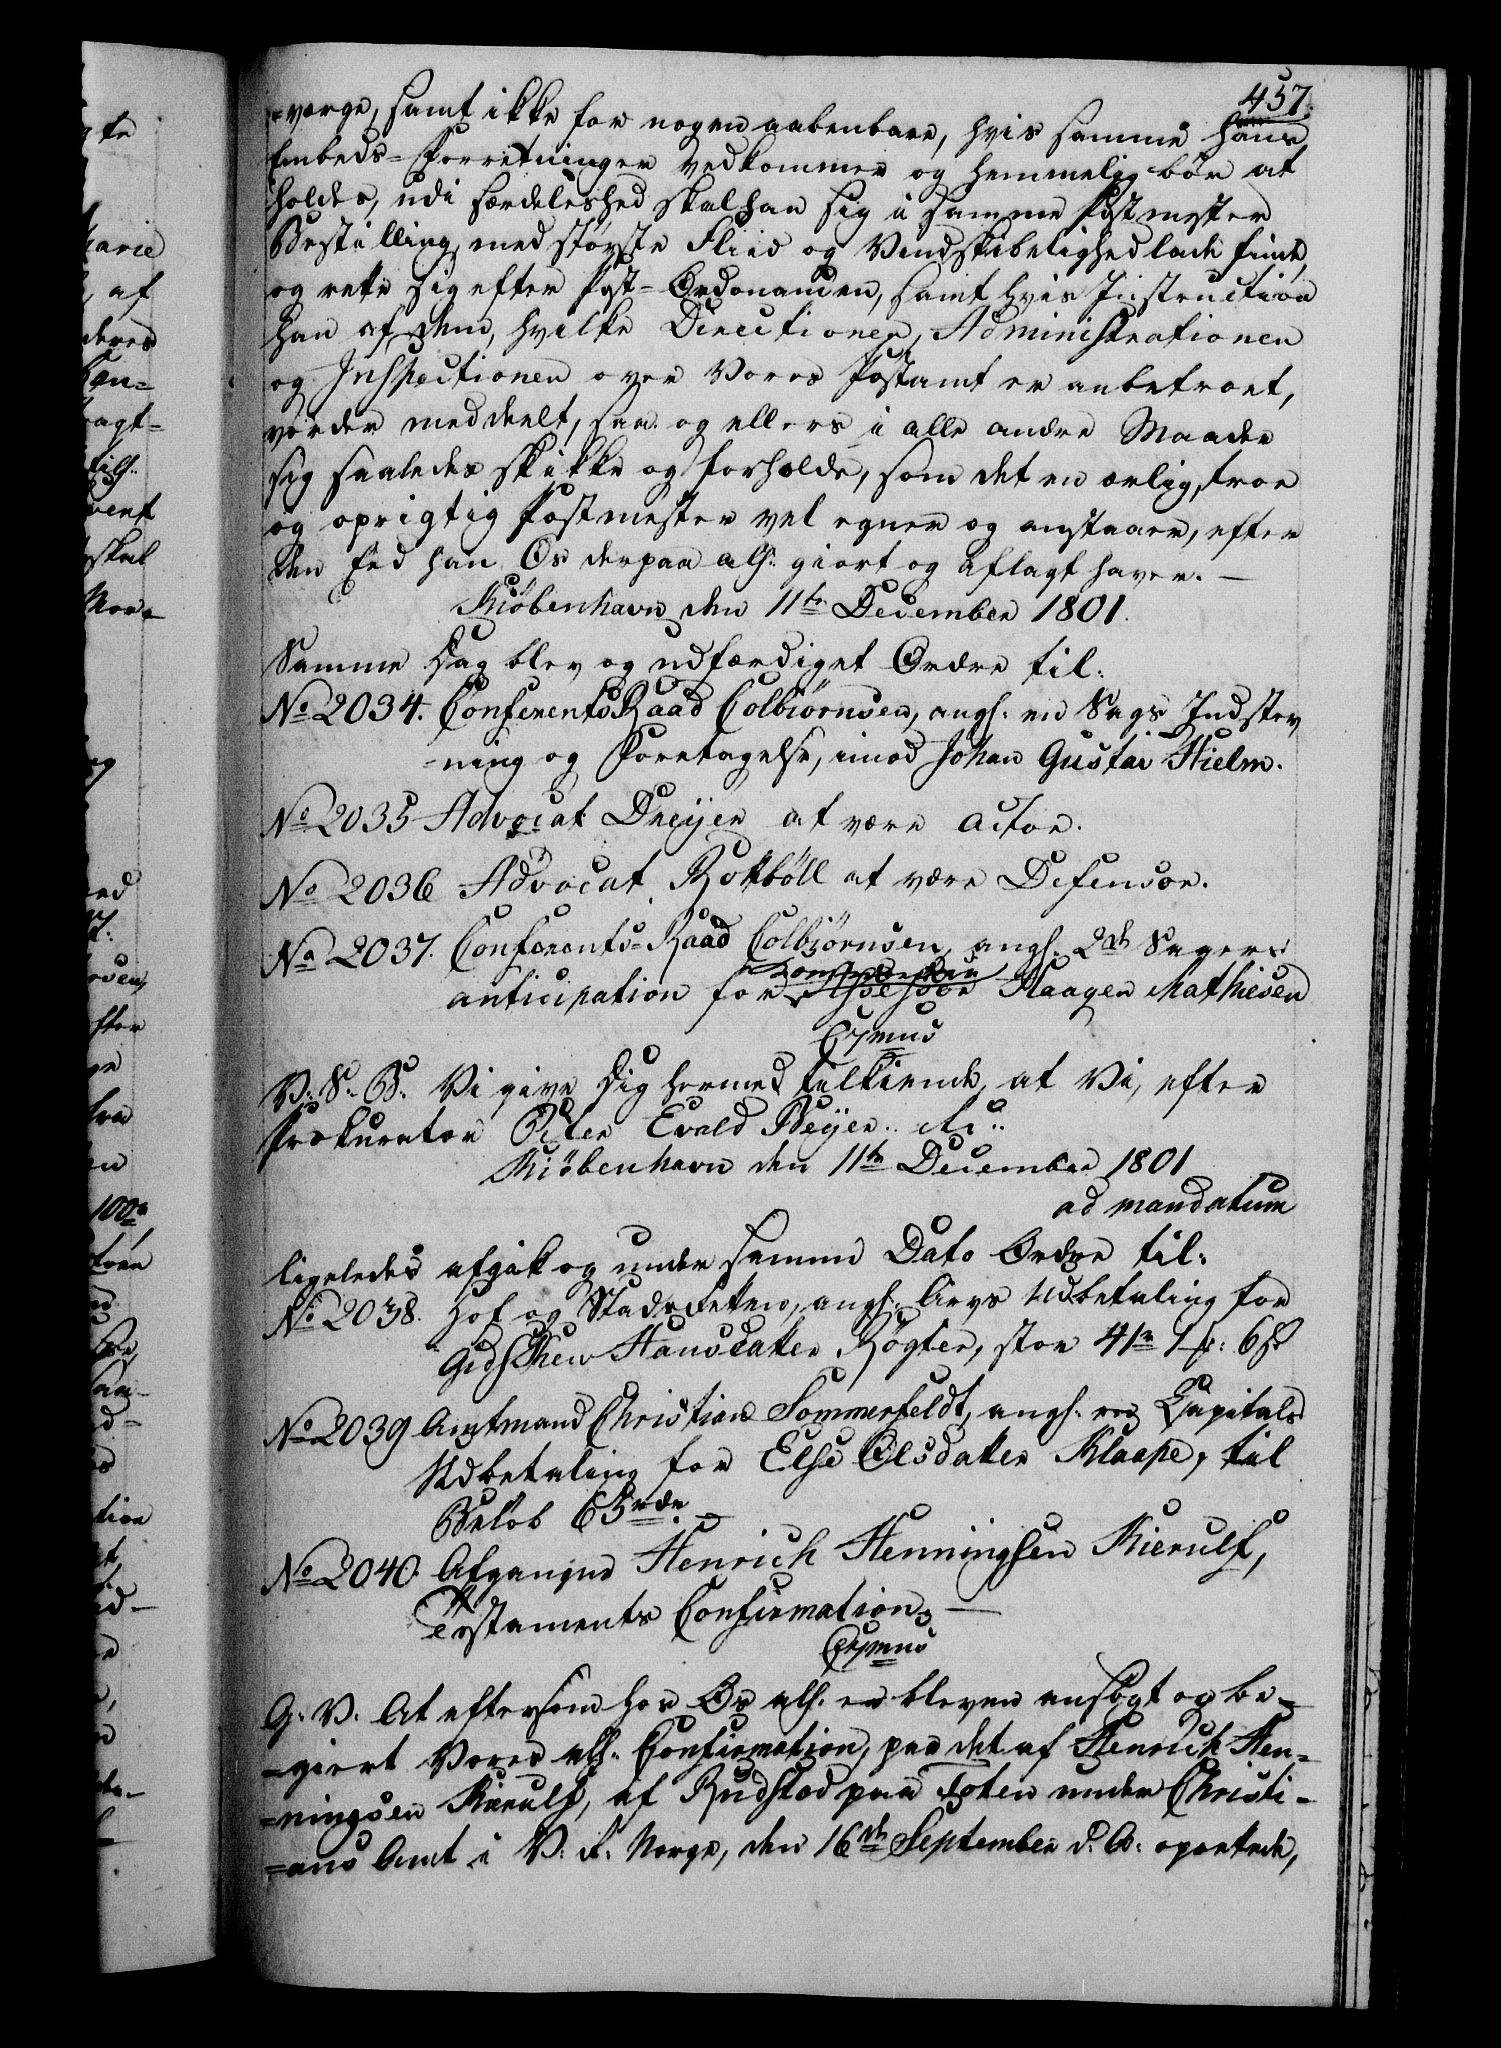 457.
=værge, samt ikke for nogen aabenbare, hvis samme hans
Embeds=Forretninger vedkommer og hemmelig bör at
holdes, udi særdeleshed skal han sig i samme Postmester
Bestilling med störste Fliid og Vindskibelighed lade finde,
og rette sig efter Post=Ordonancen, samt hvis Instruction
han af dem, hvilke Directionen, Administrationen
og Inspectionen over Vores Postamt er anbetroet,
vorder meddeelt, saa og ellers i alle andre Maader
sig saaledes skikke og forholde, som det en ærlig, troe
og oprigtig Postmester vel egner og anstaaer, efter
den Eed han Os derpaa alh: giort og aflagt haver. —
Kiöbenhavn den 11te December 1801.
Samme Dag blev og udfærdiget Ordre til:
No 2034. ConferentsRaad Colbiörnsen, angl: en Sags Indstev
=ning og Foretagelse, imod Johan Gustav Hielm.
No 2035 Advocat Dreijer at være Actor.
No 2036 Advocat Rottböll at være Defensor.
No 2037. Conferents=Raad Colbiörnsen, angl: 2de Sagers
anticipation for Haagen Mathiesen
V. S. G. Vi give Dig hermed tilkiende, at Vi, efter
Prokurator Peter Evald Meijer..
Kiöbenhavn den 11te December 1801
ad mandatum
Ligeledes afgik og under samme Dato Ordre til:
No 2038. Hof og Stadsretten, angl: Arvs Udbetaling for
Hansdatter Rögter, stor 41 r 1 : 6 s
No 2039 Amtmand Christian Sommerfeldt, angl: en Capitals
Udbetaling for Else Olsdatter Klaape, til
Belöb 63 rdr. —
No 2040. Afgangne Henrich Henningsen Kierulf,
Testaments Confirmation. —
G. V. At eftersom hos Os alh: er bleven ansögt og be=
=giert Vores alh: Confirmation, paa det af Henrich Hen=
=ningsen Kierulf, af Rudstad paa Toten under Christi=
=ans Amt i V. R. Norge, den 16de September d. A: oprettede,